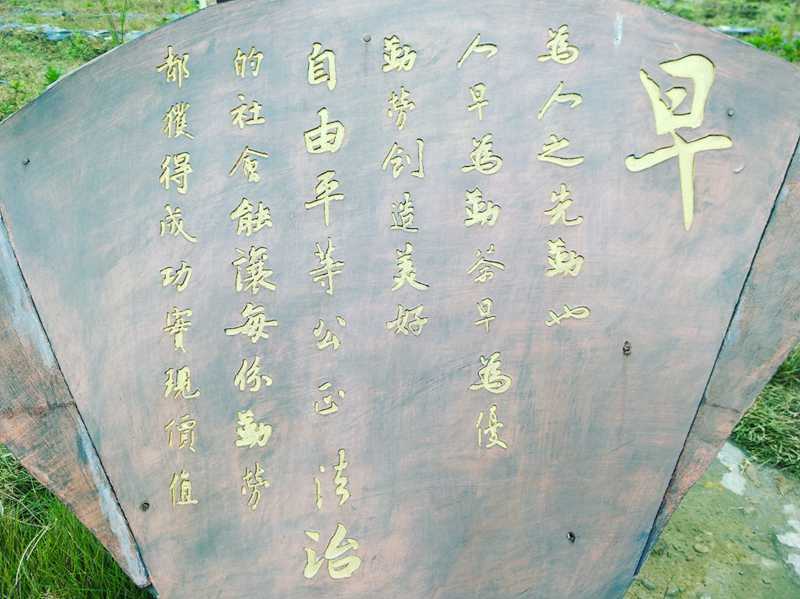 早
為人之先勤也
人早為勤茶早為優
勤勞創造美好
自由平等公正 法治
的社會能讓每係勤勞
都獲得成功實現價值